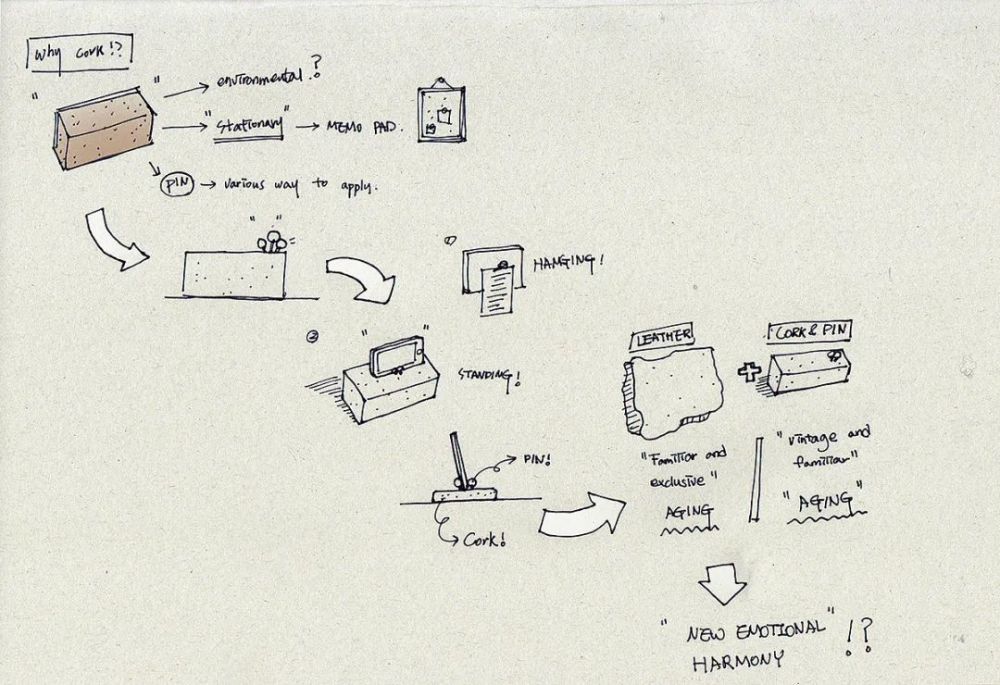 Why cork!?
environmental!?
"Stationary" → MEMO PAD.
PIN → various way to apply.
① HANGING!
② STANDING!
PIN!
Cork!
LEATHER
CORK & PIN
"Familiar and
exclusive"
AGING
"Vintage and
familiar"
"AGING"
"NEW EMOTIONAL"!?
HARMONY